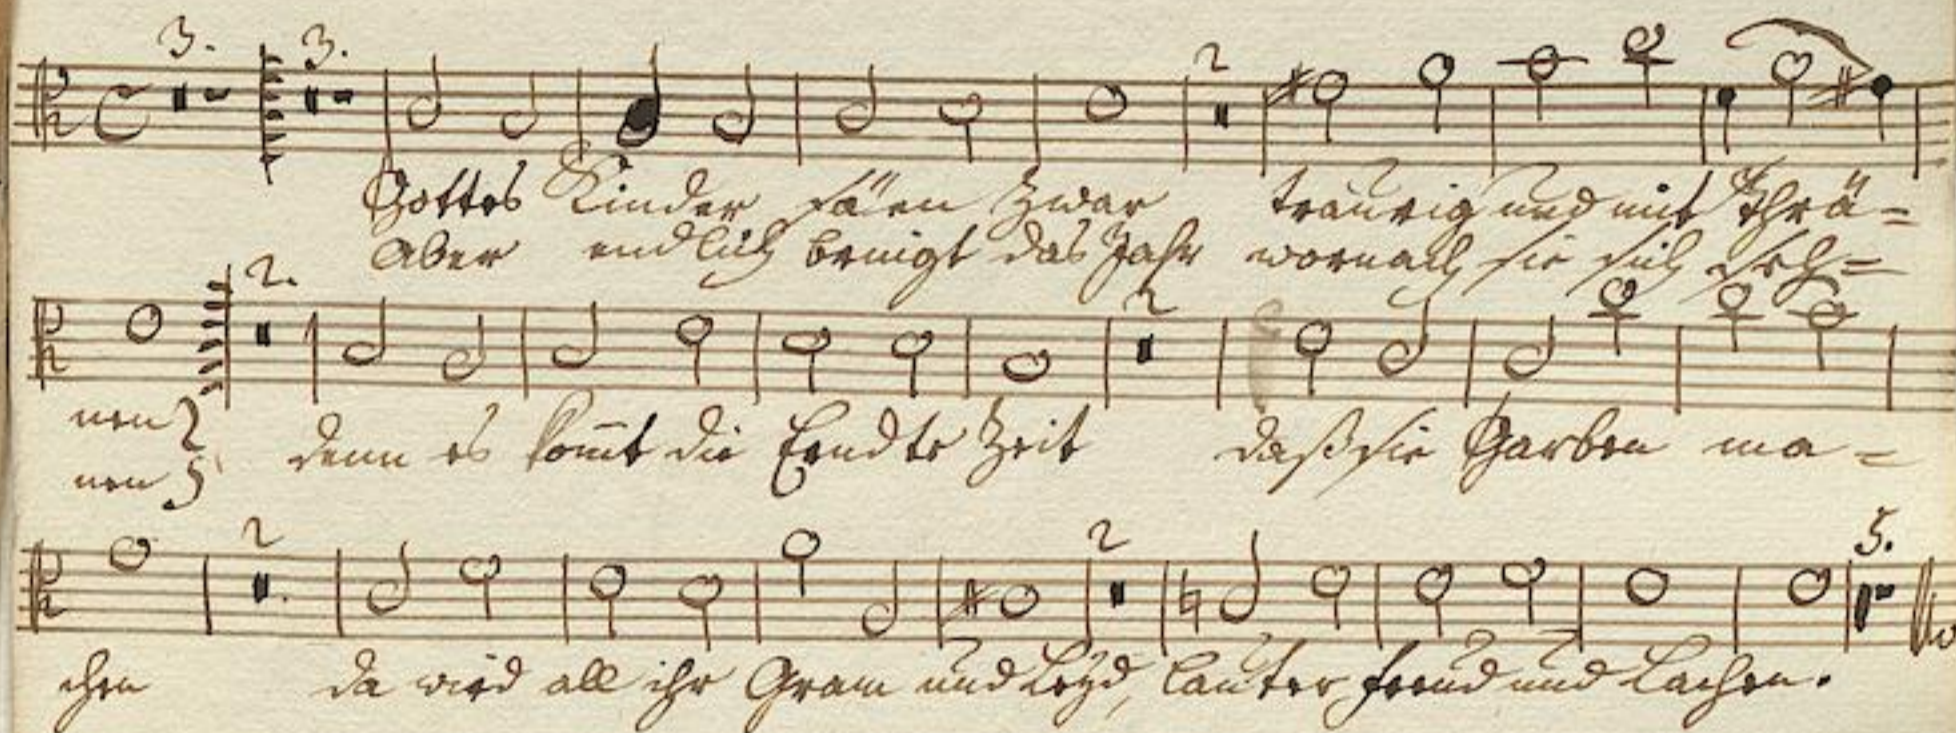 3. 3. 2
Gottes Kinder säen zwar traurig und mit Thrä=
Aber endlich bringt das Jahr wornach sie sich seh=
2. 2
nen denn es kom̅t die Erndte Zeit daß sie Garben ma=
nen
2 2 5.
chen da wird all ihr Gram und Leyd, lauter Freud und Lachen.